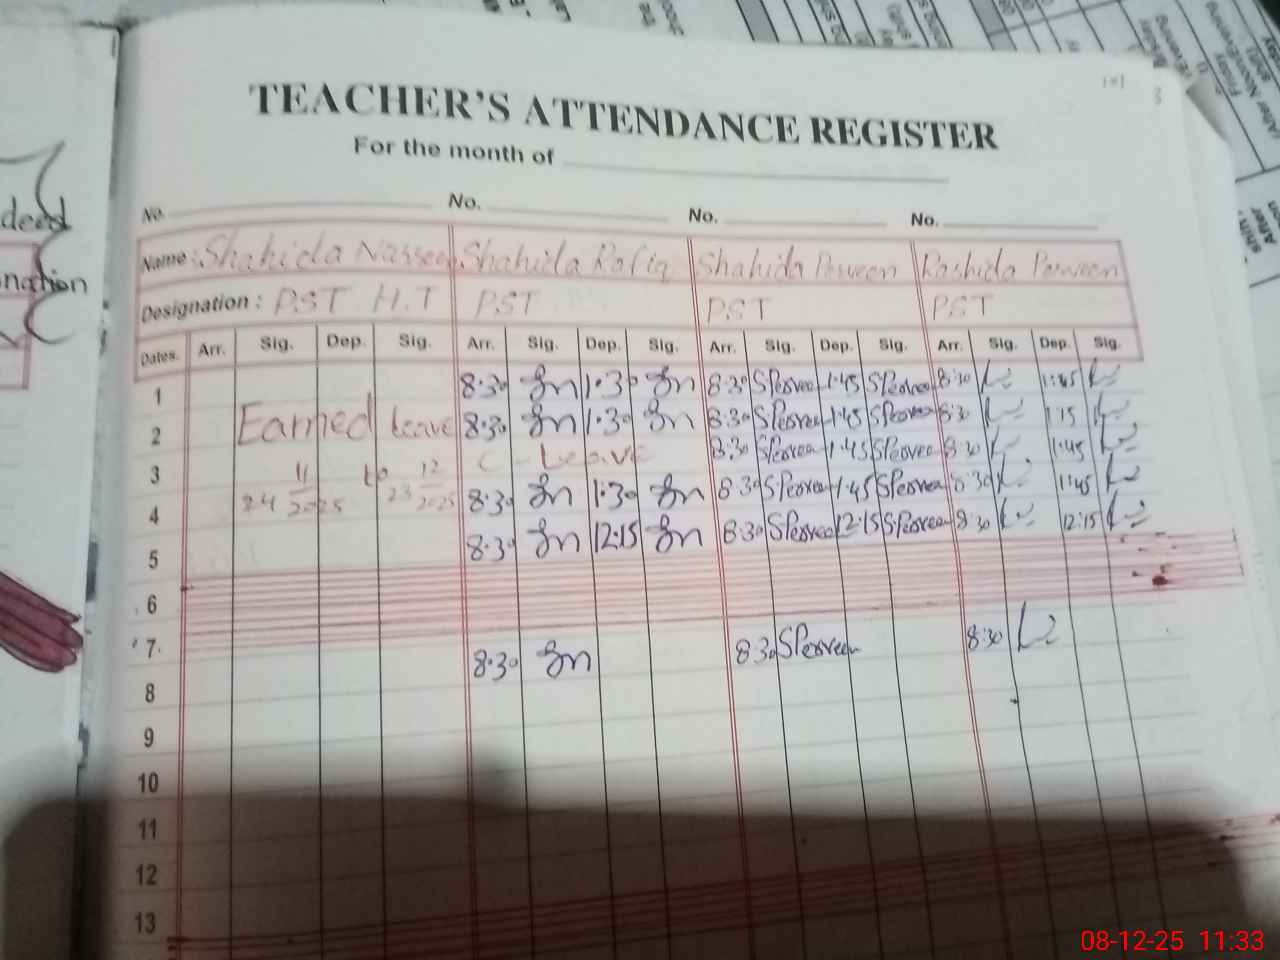 TEACHER'S ATTENDANCE REGISTER
For the month of
No. No. No. No.
Name: Shahida Naseem Shahida Rafiq Shahida Perveen Rashida Perveen
Designation: P.ST H.T P.ST P.ST P.ST
Dates. Arr. Sig. Dep. Sig. Arr. Sig. Dep. Sig. Arr. Sig. Dep. Sig. Arr. Sig. Dep. Sig.
1 8:30 1:30 8:30 SPerveen 1:45 SPerveen 8:30 1:45
2 Earned leave 8:30 1:30 8:30 SPerveen 1:45 SPerveen 8:30 1:15
3 C-Leave 8:30 SPerveen 1:45 SPerveen 8:30 1:45
4 24 11 2025 to 23 12 2025 8:30 1:30 8:30 SPerveen 1:45 SPerveen 8:30 1:45
5 8:30 12:15 8:30 SPerveen 12:15 SPerveen 8:30 12:15
6
7.
8 8:30 8:30 SPerveen 8:30
9
10
11
12
13
deed
nation
08-12-25 11:33